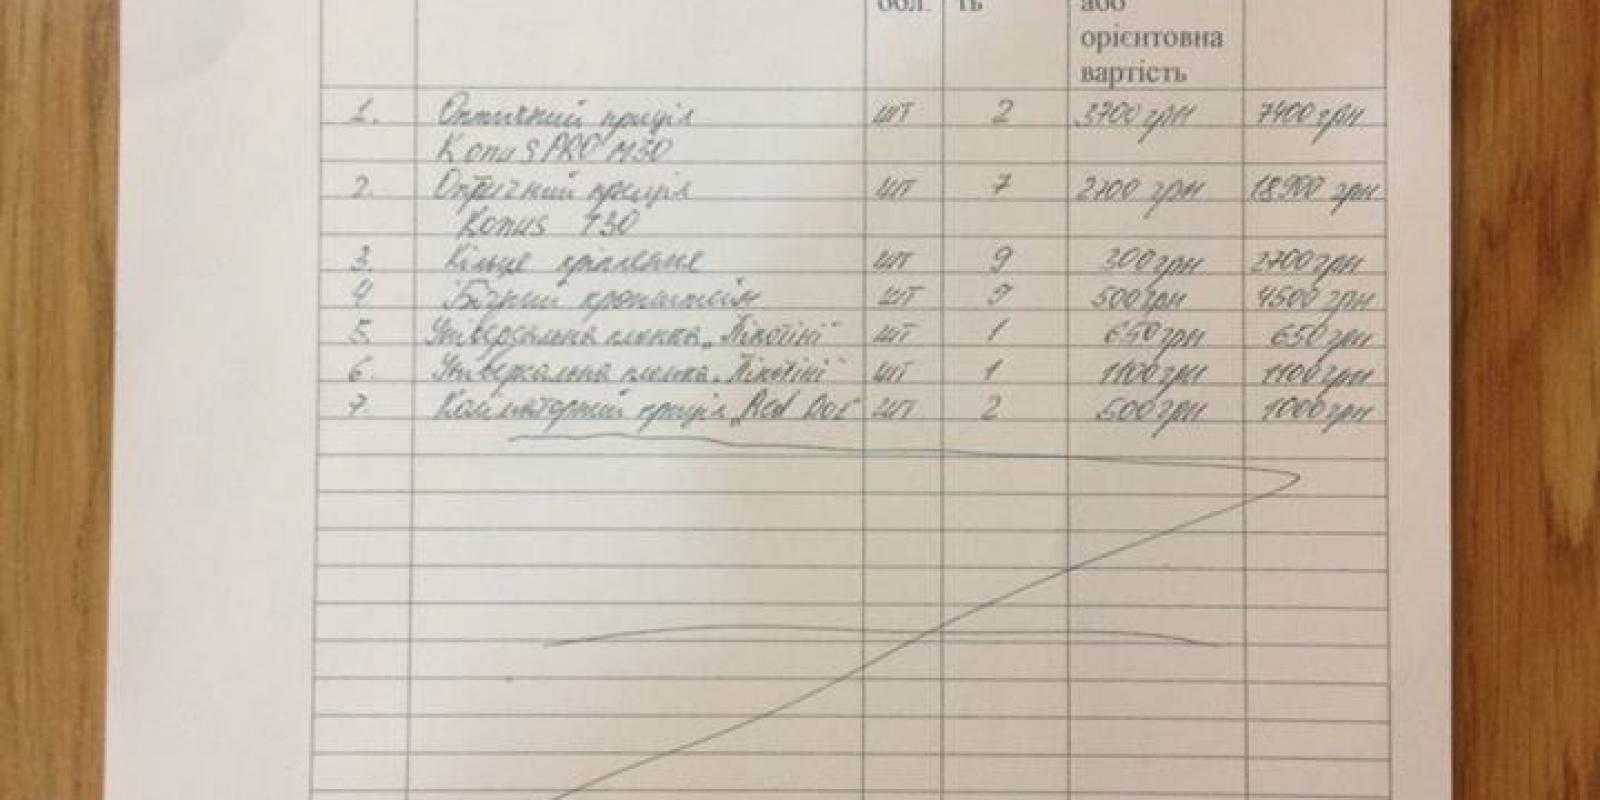 обл. ть або
орієнтовна
вартість
1. Оптичний приціл шт 2 3700 грн 7400 грн
Konus PRO M30
2. Оптичний приціл шт 7 2700 грн 18900 грн
Konus T30
3. Кільце кріплення шт 9 300 грн 2700 грн
4 Бічний кронштейн шт 9 500 грн 4500 грн
5. Універсальна планка „Пікатіні" шт 1 650 грн 650 грн
6. Універсальна планка „Пікатіні" шт 1 1100 грн 1100 грн
7. Коліматорний приціл „Red Dot" шт 2 500 грн 1000 грн